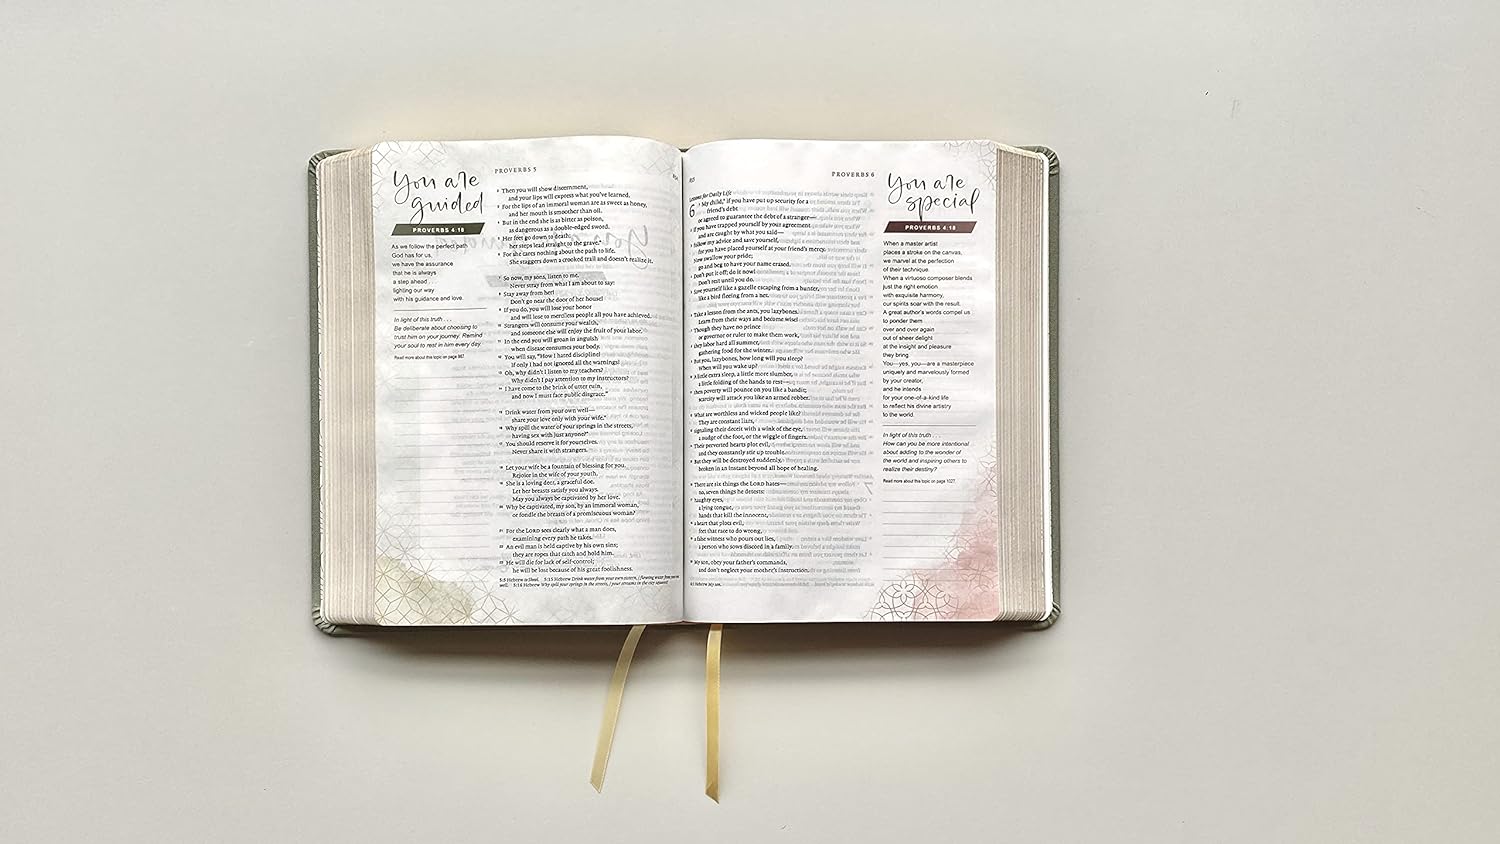 You are
guided
PROVERBS 4:18
As we follow the perfect path
God has for us,
we have the assurance
that he is always
a step ahead . . .
lighting our way
with his guidance and love.
In light of this truth . . .
Be deliberate about choosing to
trust him on your journey. Remind
your soul to rest in him every day.
Read more about this topic on page 987.
PROVERBS 5
2 Then you will show discernment,
and your lips will express what you've learned.
3 For the lips of an immoral woman are as sweet as honey,
and her mouth is smoother than oil.
4 But in the end she is as bitter as poison,
as dangerous as a double-edged sword.
5 Her feet go down to death;
her steps lead straight to the grave.*
6 For she cares nothing about the path to life.
She staggers down a crooked trail and doesn't realize it.
7 So now, my sons, listen to me.
Never stray from what I am about to say:
8 Stay away from her!
Don't go near the door of her house!
9 If you do, you will lose your honor
and will lose to merciless people all you have achieved.
10 Strangers will consume your wealth,
and someone else will enjoy the fruit of your labor.
11 In the end you will groan in anguish
when disease consumes your body.
12 You will say, "How I hated discipline!
If only I had not ignored all the warnings!
13 Oh, why didn't I listen to my teachers?
Why didn't I pay attention to my instructors?
14 I have come to the brink of utter ruin,
and now I must face public disgrace."
15 Drink water from your own well—
share your love only with your wife.*
16 Why spill the water of your springs in the streets,
having sex with just anyone?*
17 You should reserve it for yourselves.
Never share it with strangers.
18 Let your wife be a fountain of blessing for you.
Rejoice in the wife of your youth.
19 She is a loving deer, a graceful doe.
Let her breasts satisfy you always.
May you always be captivated by her love.
20 Why be captivated, my son, by an immoral woman,
or fondle the breasts of a promiscuous woman?
21 For the LORD sees clearly what a man does,
examining every path he takes.
22 An evil man is held captive by his own sins;
they are ropes that catch and hold him.
23 He will die for lack of self-control;
he will be lost because of his great foolishness.
5:5 Hebrew to Sheol. 5:15 Hebrew Drink water from your own cistern, / flowing water from your own
well. 5:16 Hebrew Why spill your springs in the streets, / your streams in the city squares?
PROVERBS 6
Lessons for Daily Life
6 1 My child,* if you have put up security for a
friend's debt
or agreed to guarantee the debt of a stranger—
2 if you have trapped yourself by your agreement
and are caught by what you said—
3 follow my advice and save yourself,
for you have placed yourself at your friend's mercy.
Now swallow your pride;
go and beg to have your name erased.
4 Don't put it off; do it now!
Don't rest until you do.
5 Save yourself like a gazelle escaping from a hunter,
like a bird fleeing from a net.
6 Take a lesson from the ants, you lazybones.
Learn from their ways and become wise!
7 Though they have no prince
or governor or ruler to make them work,
8 they labor hard all summer,
gathering food for the winter.
9 But you, lazybones, how long will you sleep?
When will you wake up?
10 A little extra sleep, a little more slumber,
a little folding of the hands to rest—
11 then poverty will pounce on you like a bandit;
scarcity will attack you like an armed robber.
12 What are worthless and wicked people like?
They are constant liars,
13 signaling their deceit with a wink of the eye,
a nudge of the foot, or the wiggle of fingers.
14 Their perverted hearts plot evil,
and they constantly stir up trouble.
15 But they will be destroyed suddenly,
broken in an instant beyond all hope of healing.
16 There are six things the LORD hates—
no, seven things he detests:
17 haughty eyes,
a lying tongue,
hands that kill the innocent,
18 a heart that plots evil,
feet that race to do wrong,
19 a false witness who pours out lies,
a person who sows discord in a family.
20 My son, obey your father's commands,
and don't neglect your mother's instruction.
6:1 Hebrew My son.
You are
special
PROVERBS 4:18
When a master artist
places a stroke on the canvas,
we marvel at the perfection
of their technique.
When a virtuoso composer blends
just the right emotion
with exquisite harmony,
our spirits soar with the result.
A great author's words compel us
to ponder them
over and over again
out of sheer delight
at the insight and pleasure
they bring.
You—yes, you—are a masterpiece
uniquely and marvelously formed
by your creator,
and he intends
for your one-of-a-kind life
to reflect his divine artistry
to the world.
In light of this truth . . .
How can you be more intentional
about adding to the wonder of
the world and inspiring others to
realize their destiny?
Read more about this topic on page 1027.